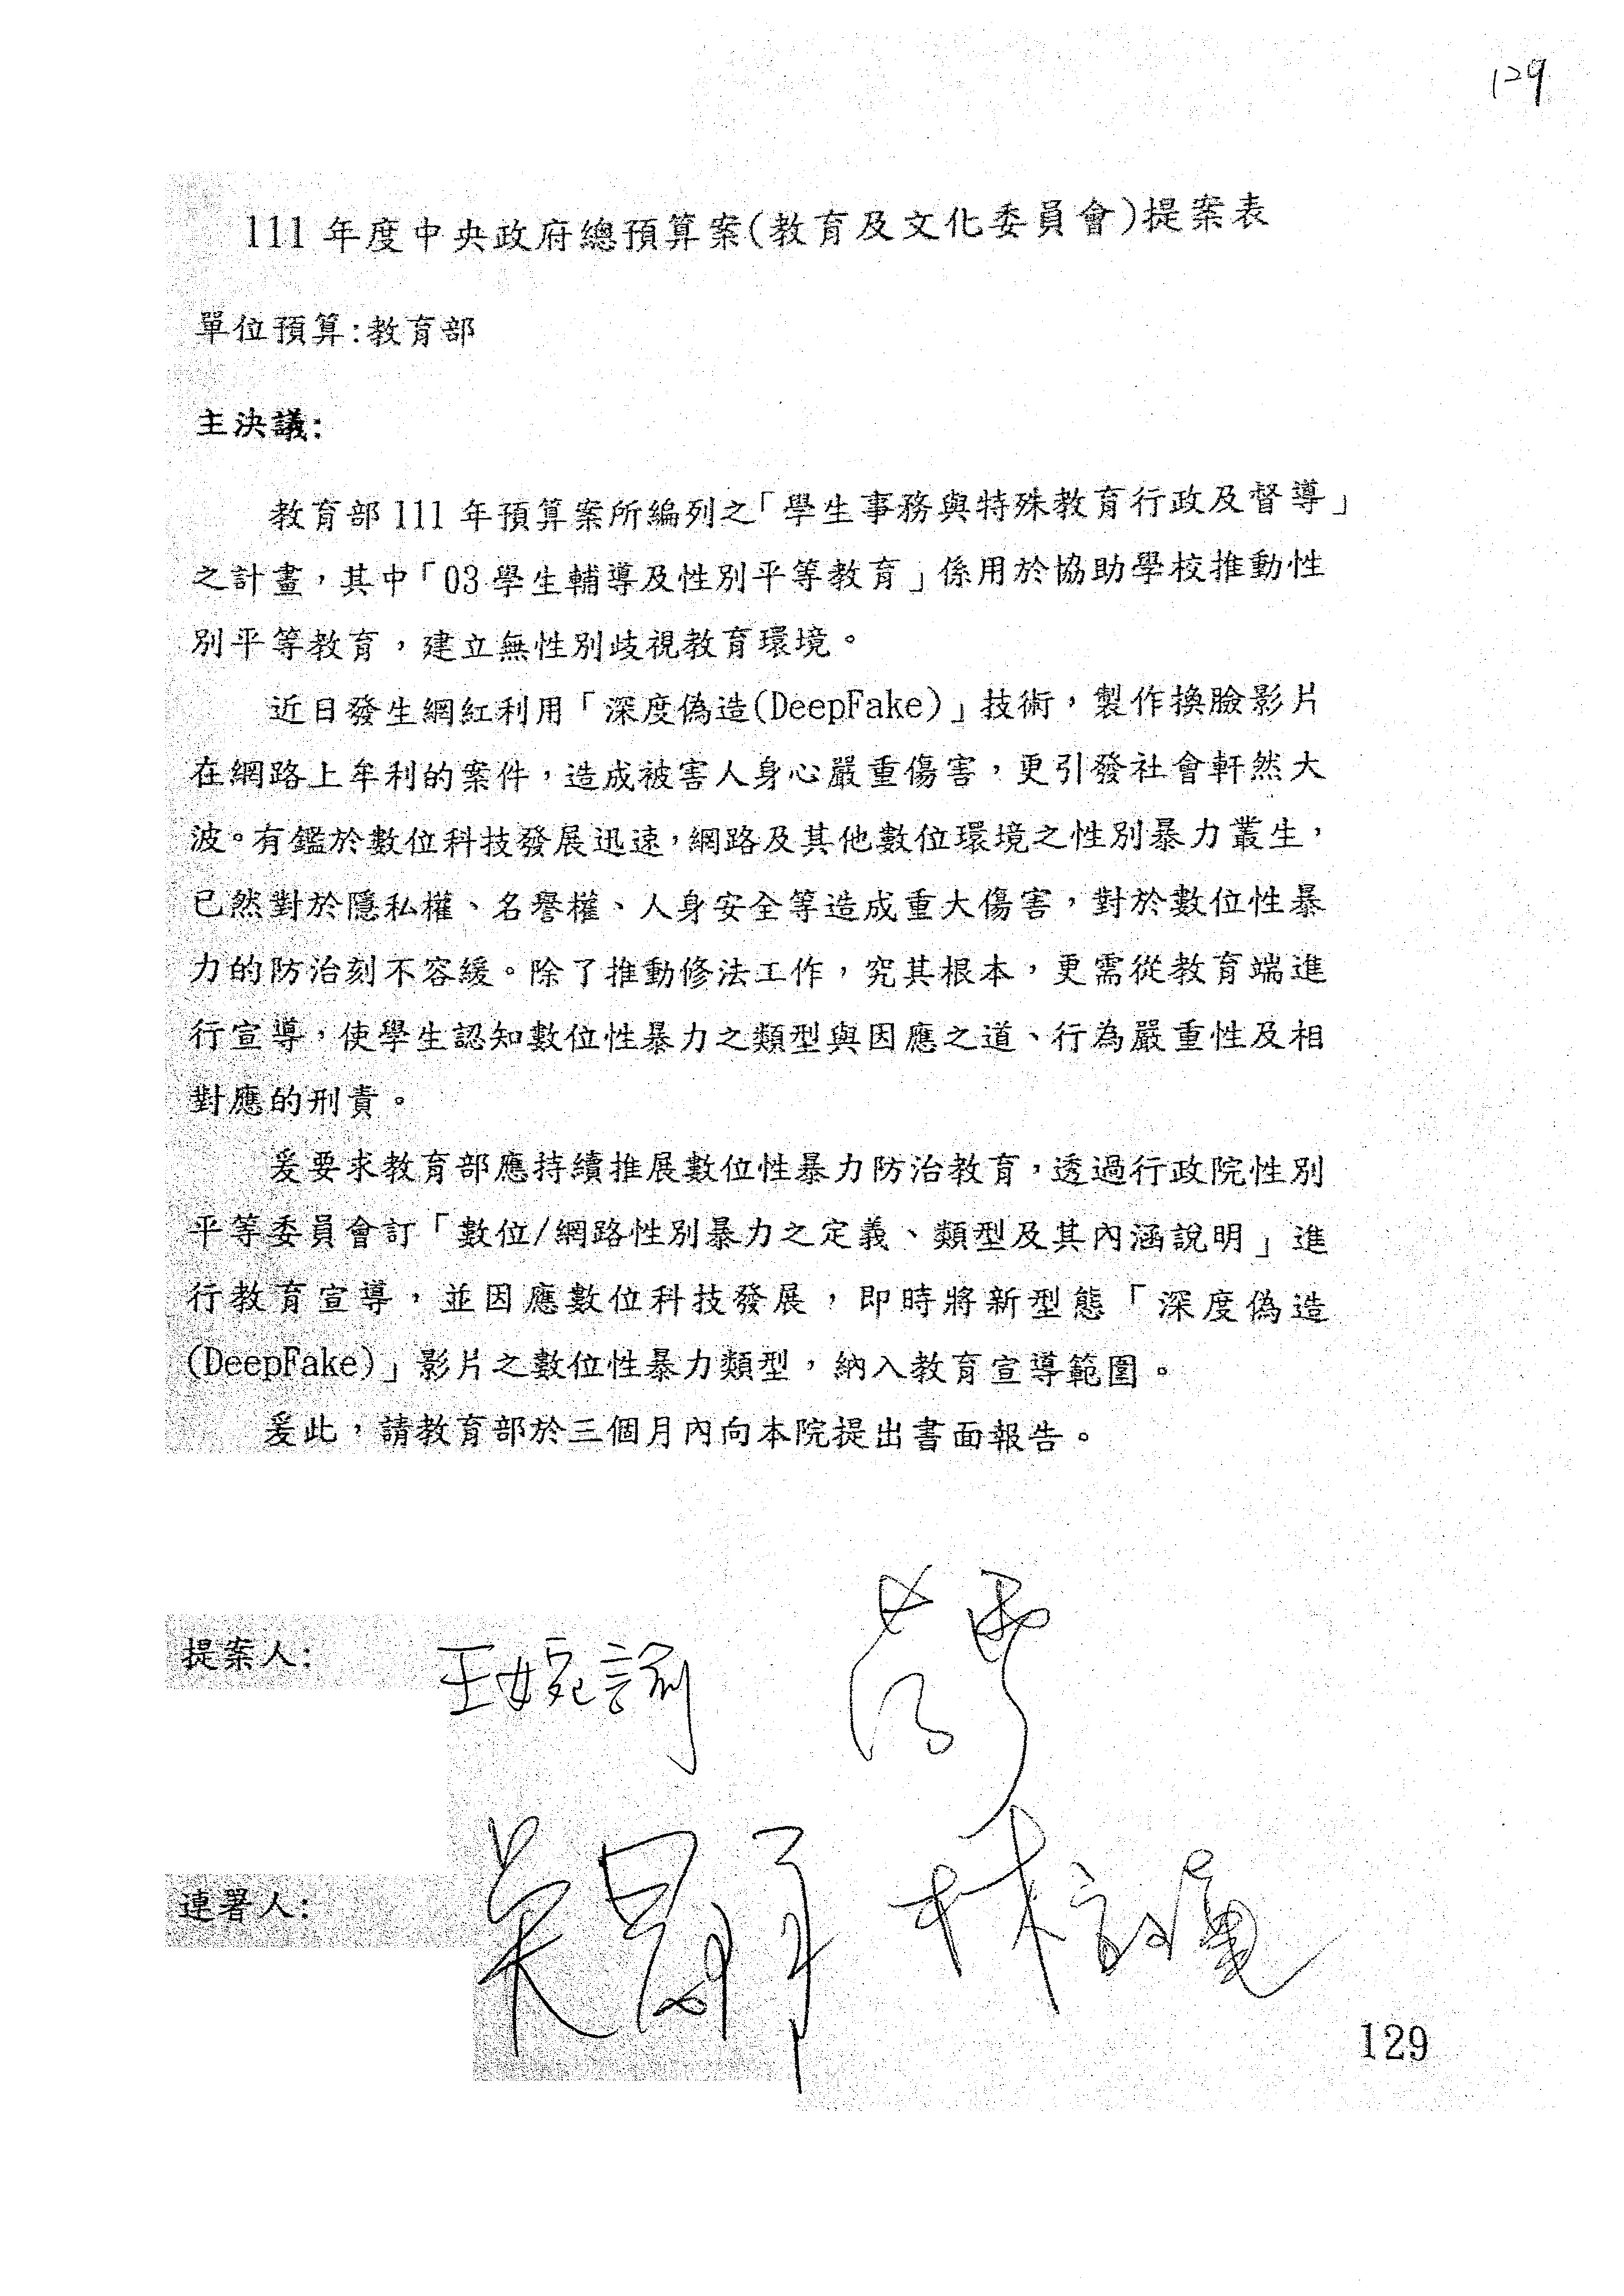 129
111 年度中央政府總預算案(教育及文化委員會)提案表
單位預算:教育部
主決議:
教育部 111 年預算案所編列之「學生事務與特殊教育行政及督導」
之計畫，其中「03 學生輔導及性別平等教育」係用於協助學校推動性
別平等教育，建立無性別歧視教育環境。
近日發生網紅利用「深度偽造(DeepFake)」技術，製作換臉影片
在網路上牟利的案件，造成被害人身心嚴重傷害，更引發社會軒然大
波。有鑑於數位科技發展迅速，網路及其他數位環境之性別暴力叢生，
已然對於隱私權、名譽權、人身安全等造成重大傷害，對於數位性暴
力的防治刻不容緩。除了推動修法工作，究其根本，更需從教育端進
行宣導，使學生認知數位性暴力之類型與因應之道、行為嚴重性及相
對應的刑責。
爰要求教育部應持續推展數位性暴力防治教育，透過行政院性別
平等委員會訂「數位/網路性別暴力之定義、類型及其內涵說明」進
行教育宣導，並因應數位科技發展，即時將新型態「深度偽造
(DeepFake)」影片之數位性暴力類型，納入教育宣導範圍。
爰此，請教育部於三個月內向本院提出書面報告。
提案人: 王婉諭
連署人:
129